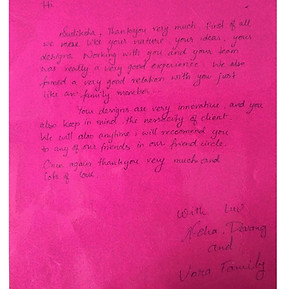 Hi
Sudiksha, Thankyou very much. First of all
we more like your nature, your ideas, your
designs. Working with you and your team
was really a very good experience. We also
formed a very good relation with you just
like an family member.
Your designs are very innovative, and you
also keep in mind the necessity of client.
We will also anytime, will recommend you
to any of our friends in our friend circle.
Once again thankyou very much and
lots of love.
With luv?
Neha. Devang
and
Vora Family